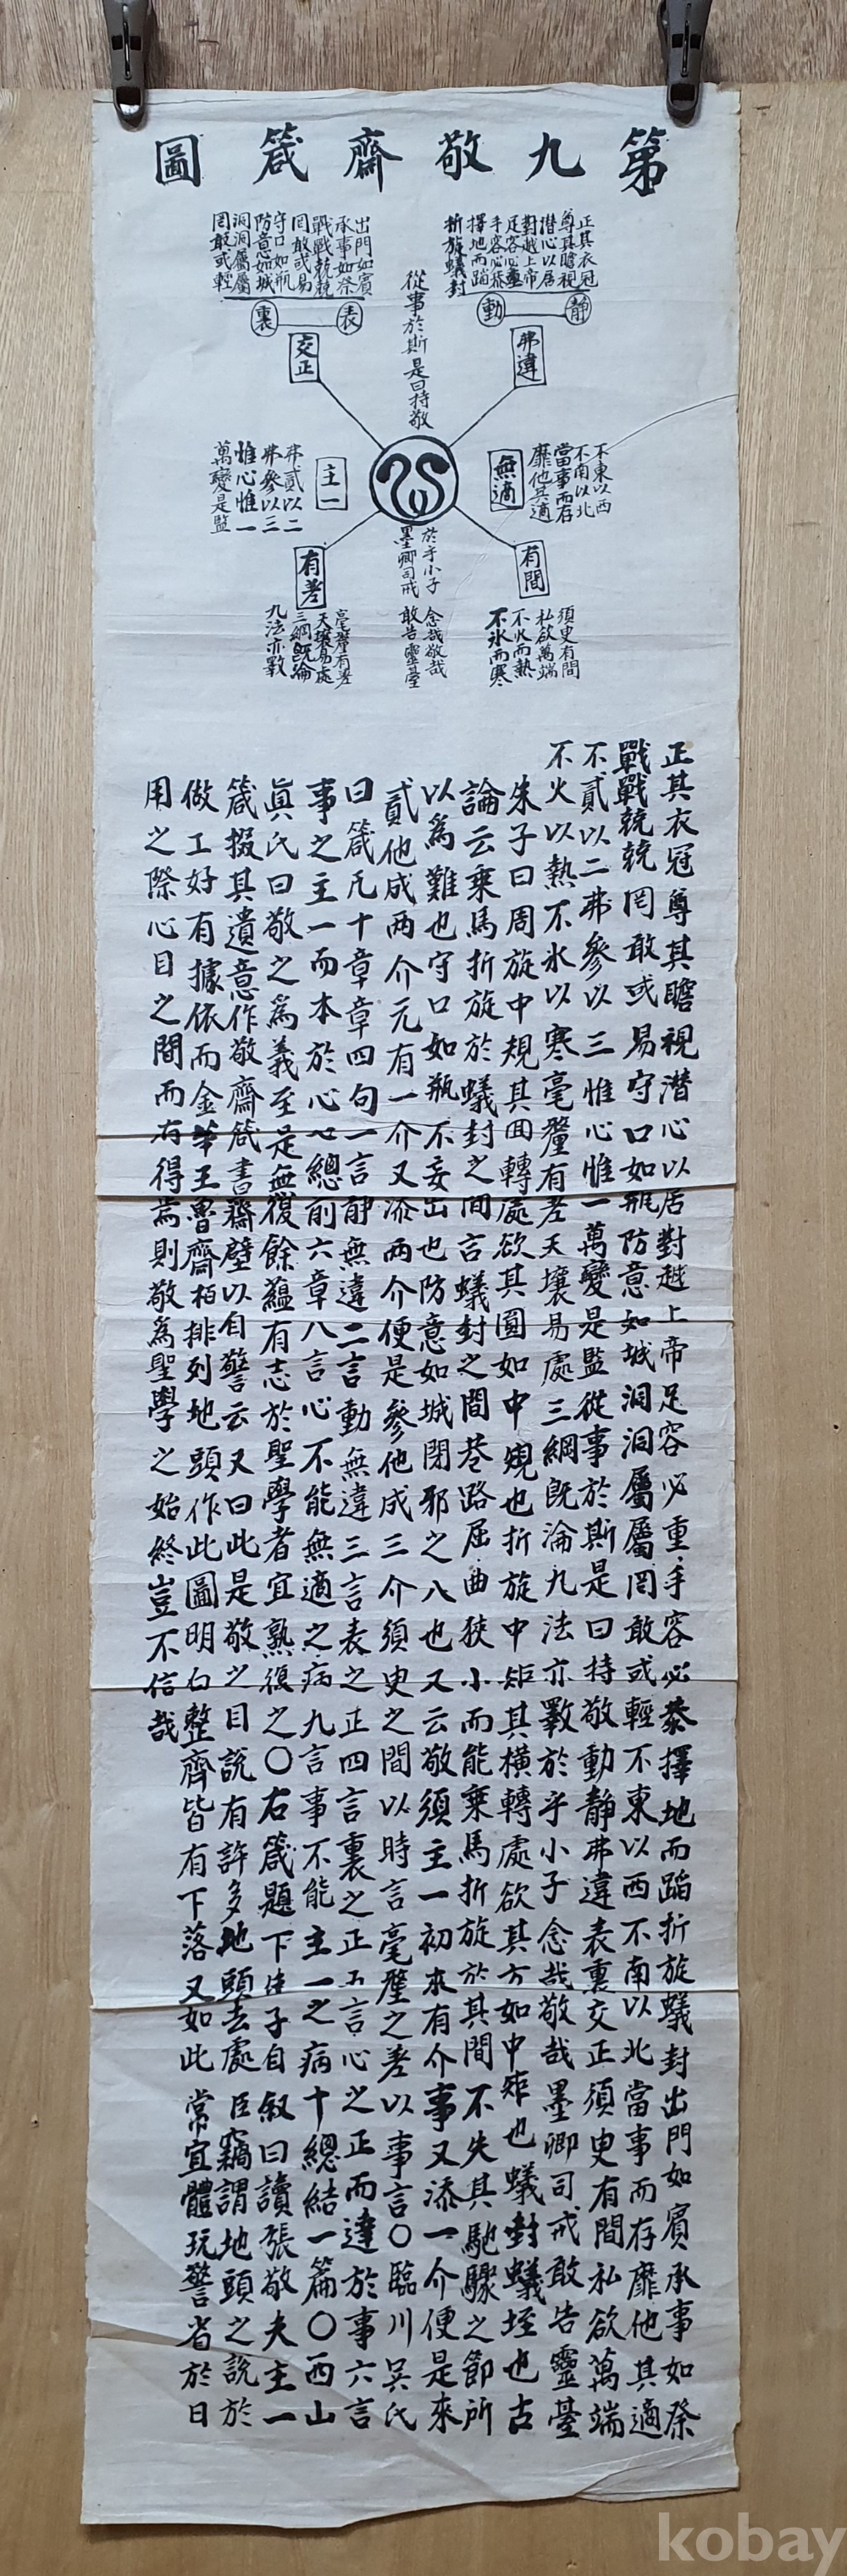 第九敬齋箴圖
正其衣冠
尊其瞻視
潛心以居
對越上帝
足容必重
手容必恭
擇地而蹈
折旋蟻封
靜
動
弗違
出門如賓
承事如祭
戰戰兢兢
罔敢或易
守口如瓶
防意如城
洞洞屬屬
罔敢或輕
表
裏
交正
從事於斯是曰持敬
心
不東以西
不南以北
當事而存
靡他其適
無適
主一
弗貳以二
弗參以三
惟心惟一
萬變是監
有間
須臾有間
私欲萬端
不火而熱
不氷而寒
有差
毫釐有差
天壤易處
三綱旣淪
九法亦斁
於乎小子
念哉敬哉
墨卿司戒
敢告靈臺
正其衣冠尊其瞻視潛心以居對越上帝足容必重手容必恭擇地而蹈折旋蟻封出門如賓承事如祭
戰戰兢兢罔敢或易守口如瓶防意如城洞洞屬屬罔敢或輕不東以西不南以北當事而存靡他其適
不貳以二弗參以三惟心惟一萬變是監從事於斯是曰持敬動靜弗違表裏交正須臾有間私欲萬端
不火以熱不氷以寒毫釐有差天壤易處三綱旣淪九法亦斁於乎小子念哉敬哉墨卿司戒敢告靈臺
朱子曰周旋中規其回轉處欲其圓如中規也折旋中矩其橫轉處欲其方如中矩也蟻封蟻垤也古
論云乘馬折旋於蟻封之間言蟻封之間巷路屈曲狹小而能乘馬折旋於其間不失其馳驟之節所
以爲難也守口如瓶不妄出也防意如城閉邪之入也又云敬須主一初來有介事又添一介便是來
貳他成兩介元有一介又添兩介便是參他成三介須臾之間以時言毫釐之差以事言○臨川吳氏
曰箴凡十章章四句一言靜無違二言動無違三言表之正四言裏之正五言心之正而達於事六言
事之主一而本於心七總前六章八言心不能無適之病九言事不能主一之病十總結一篇○西山
眞氏曰敬之爲義至是無復餘蘊有志於聖學者宜熟復之○右箴題下朱子自叙曰讀張敬夫主一
箴掇其遺意作敬齋箴書齋壁以自警云又曰此是敬之目說有許多地頭去處臣竊謂地頭之說於
做工好有據依而金華王魯齋柏排列地頭作此圖明白整齊皆有下落又如此常宜體玩警省於日
用之際心目之間而有得焉則敬爲聖學之始終豈不信哉
kobay